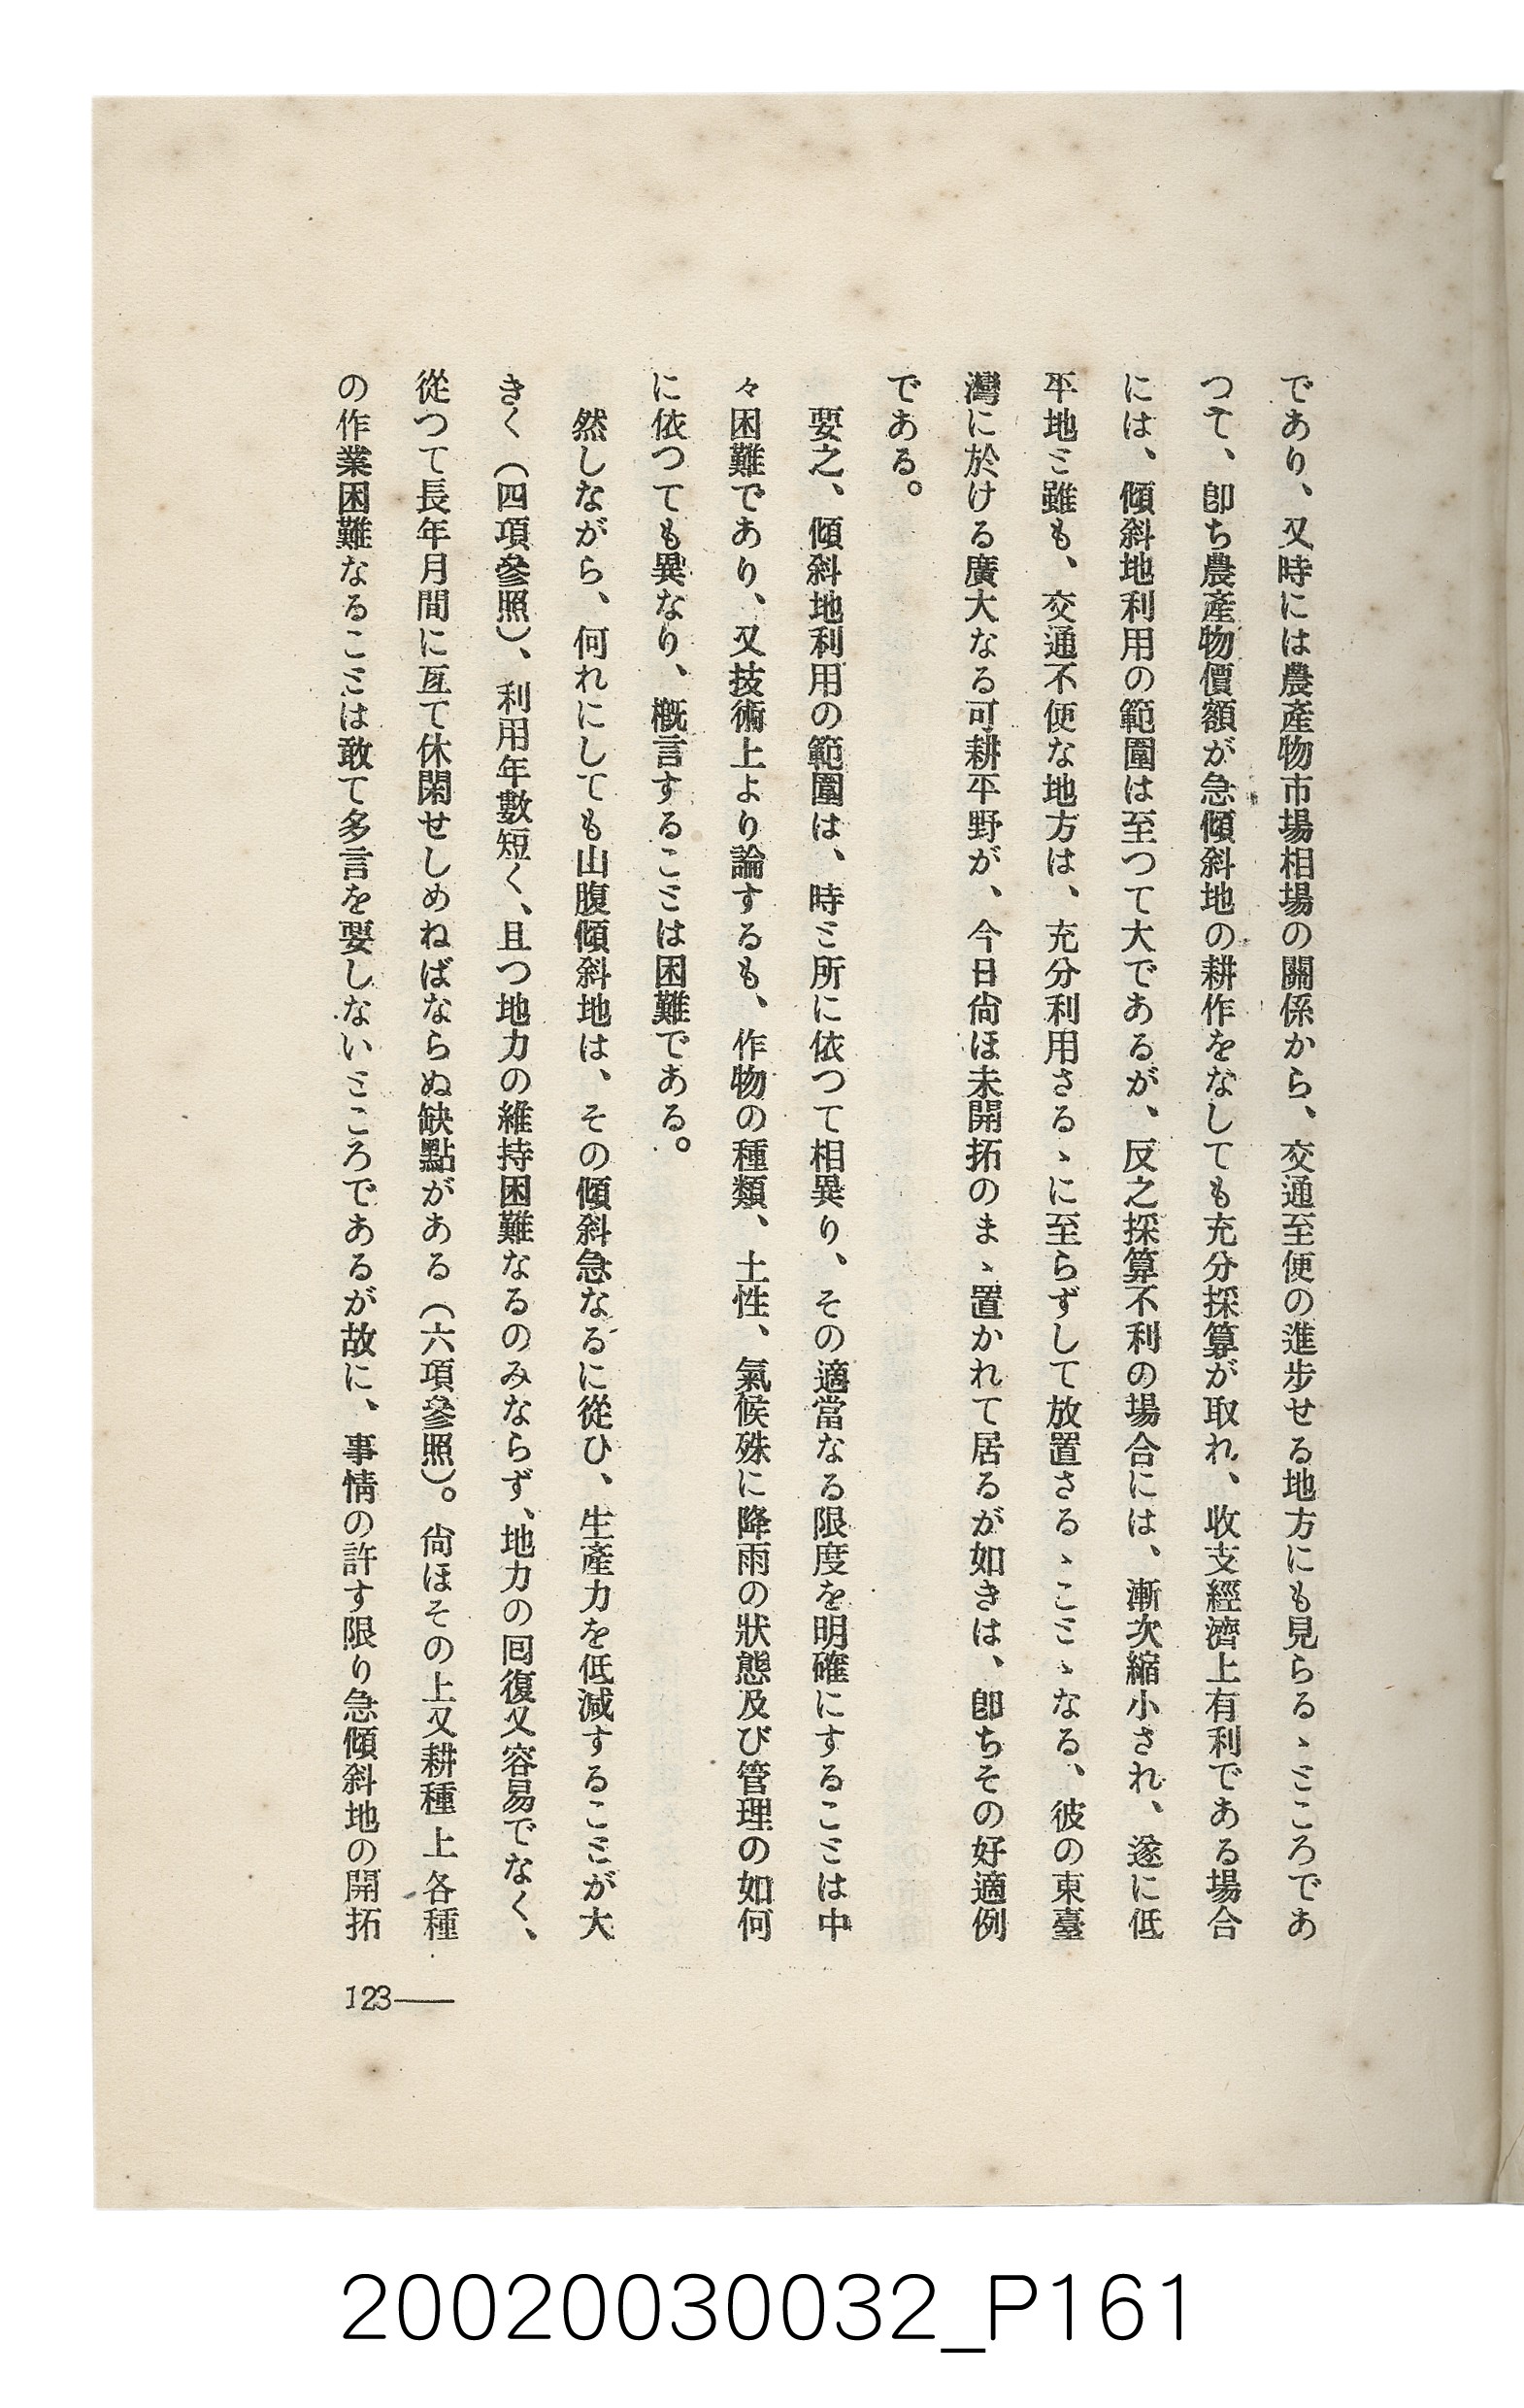 であり、又時には農產物市場相場の關係から、交通至便の進步せる地方にも見らるゝところであ
つて、卽ち農產物價額が急傾斜地の耕作をなしても充分採算が取れ、收支經濟上有利である場合
には、傾斜地利用の範圍は至つて大であるが、反之採算不利の場合には、漸次縮小され、遂に低
平地ミ雖も、交通不便な地方は、充分利用さるゝに至らずして放置さるゝこミゝなる、彼の東臺
灣に於ける廣大なる可耕平野が、今日尙ほ未開拓のまゝ置かれて居るが如きは、卽ちその好適例
である。
要之、傾斜地利用の範圍は、時ミ所に依つて相異り、その適當なる限度を明確にするこミは中
々困難であり、又技術上より論するも、作物の種類、土性、氣候殊に降雨の狀態及び管理の如何
に依つても異なり、槪言するこミは困難である。
然しながら、何れにしても山腹傾斜地は、その傾斜急なるに從ひ、生產力を低減するこミが大
きく（四項參照）、利用年數短く、且つ地力の維持困難なるのみならず、地力の囘復又容易でなく、
從つて長年月間に亙て休閑せしめねばならぬ缺點がある（六項參照）。尙ほその上又耕種上各種
の作業困難なるこミは敢て多言を要しないミころであるが故に、事情の許す限り急傾斜地の開拓
123——
20020030032_P161